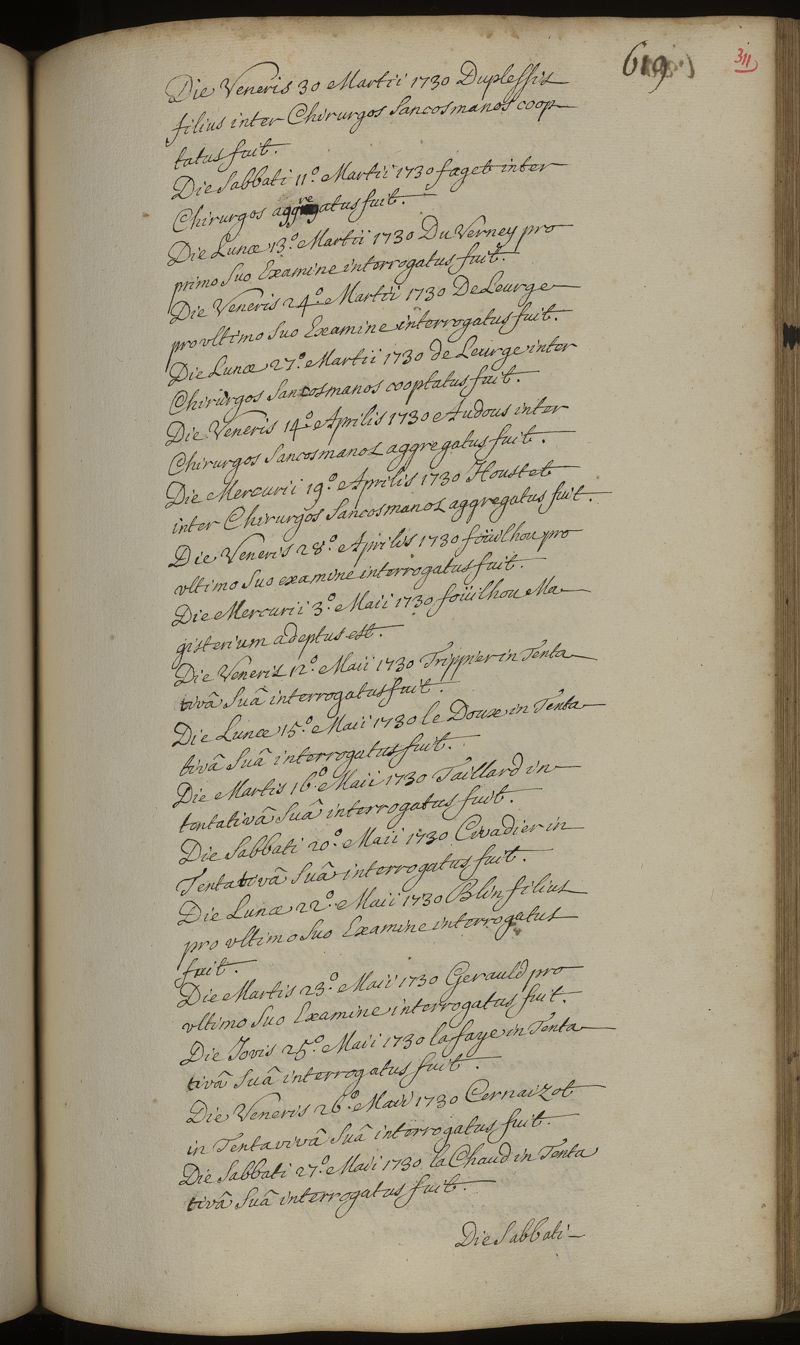 619 311
Die Veneris 30 Martii 1730 Duplessis
filius inter Chirurgos Sancosmanos coop
tatus fuit.
Die Sabbati 11.° Martii 1730 faget inter
Chirurgos aggregatus fuit.
Die Lunæ 13.° Martii 1730 Du Verney pro
primo Suo Examine interrogatus fuit.
Die Veneris 24.° Martii 1730 De Leurge
pro vltimo Suo Examine interrogatus fuit.
Die Lunæ 27.° Martii 1730 de Leurge inter
Chirurgos Sancosmanos cooptatus fuit.
Die Veneris 14.° Aprilis 1730 Audous inter
Chirurgos Sancosmanos aggregatus fuit.
Die Mercurii 19.° Aprilis 1730 Houstet
inter Chirurgos Sancosmanos aggregatus fuit.
Die Veneris 28.° Aprilis 1730 foüilhou pro
vltimo Suo examine interrogatus fuit.
Die Mercurii 3.° Maii 1730 foüilhou Ma
gisterium adeptus est.
Die Veneris 12.° Maii 1730 Trippier in Tenta
tivâ Suâ interrogatus fuit.
Die Lunæ 15.° Maii 1730 le Doux in Tenta
tivâ Suâ interrogatus fuit.
Die Martis 16.° Maii 1730 Taillard in
tentativâ Suâ interrogatus fuit.
Die Sabbati 20.° Maii 1730 Civadier in
Tentativâ Suâ interrogatus fuit.
Die Lunæ 22.° Maii 1730 Blin filius
pro vltimo Suo Examine interrogatus
fuit.
Die Martis 23.° Maii 1730 Gerauld pro
vltimo Suo Examine interrogatus fuit.
Die Jovis 25.° Maii 1730 lafaye in Tenta
tivâ Suâ interrogatus fuit.
Die Veneris 26.° Maii 1730 Cernaizot
in Tentavivâ Suâ interrogatus fuit.
Die Sabbati 27.° Maii 1730 la Chaud in Tenta
tivâ Suâ interrogatus fuit.
Die Sabbati